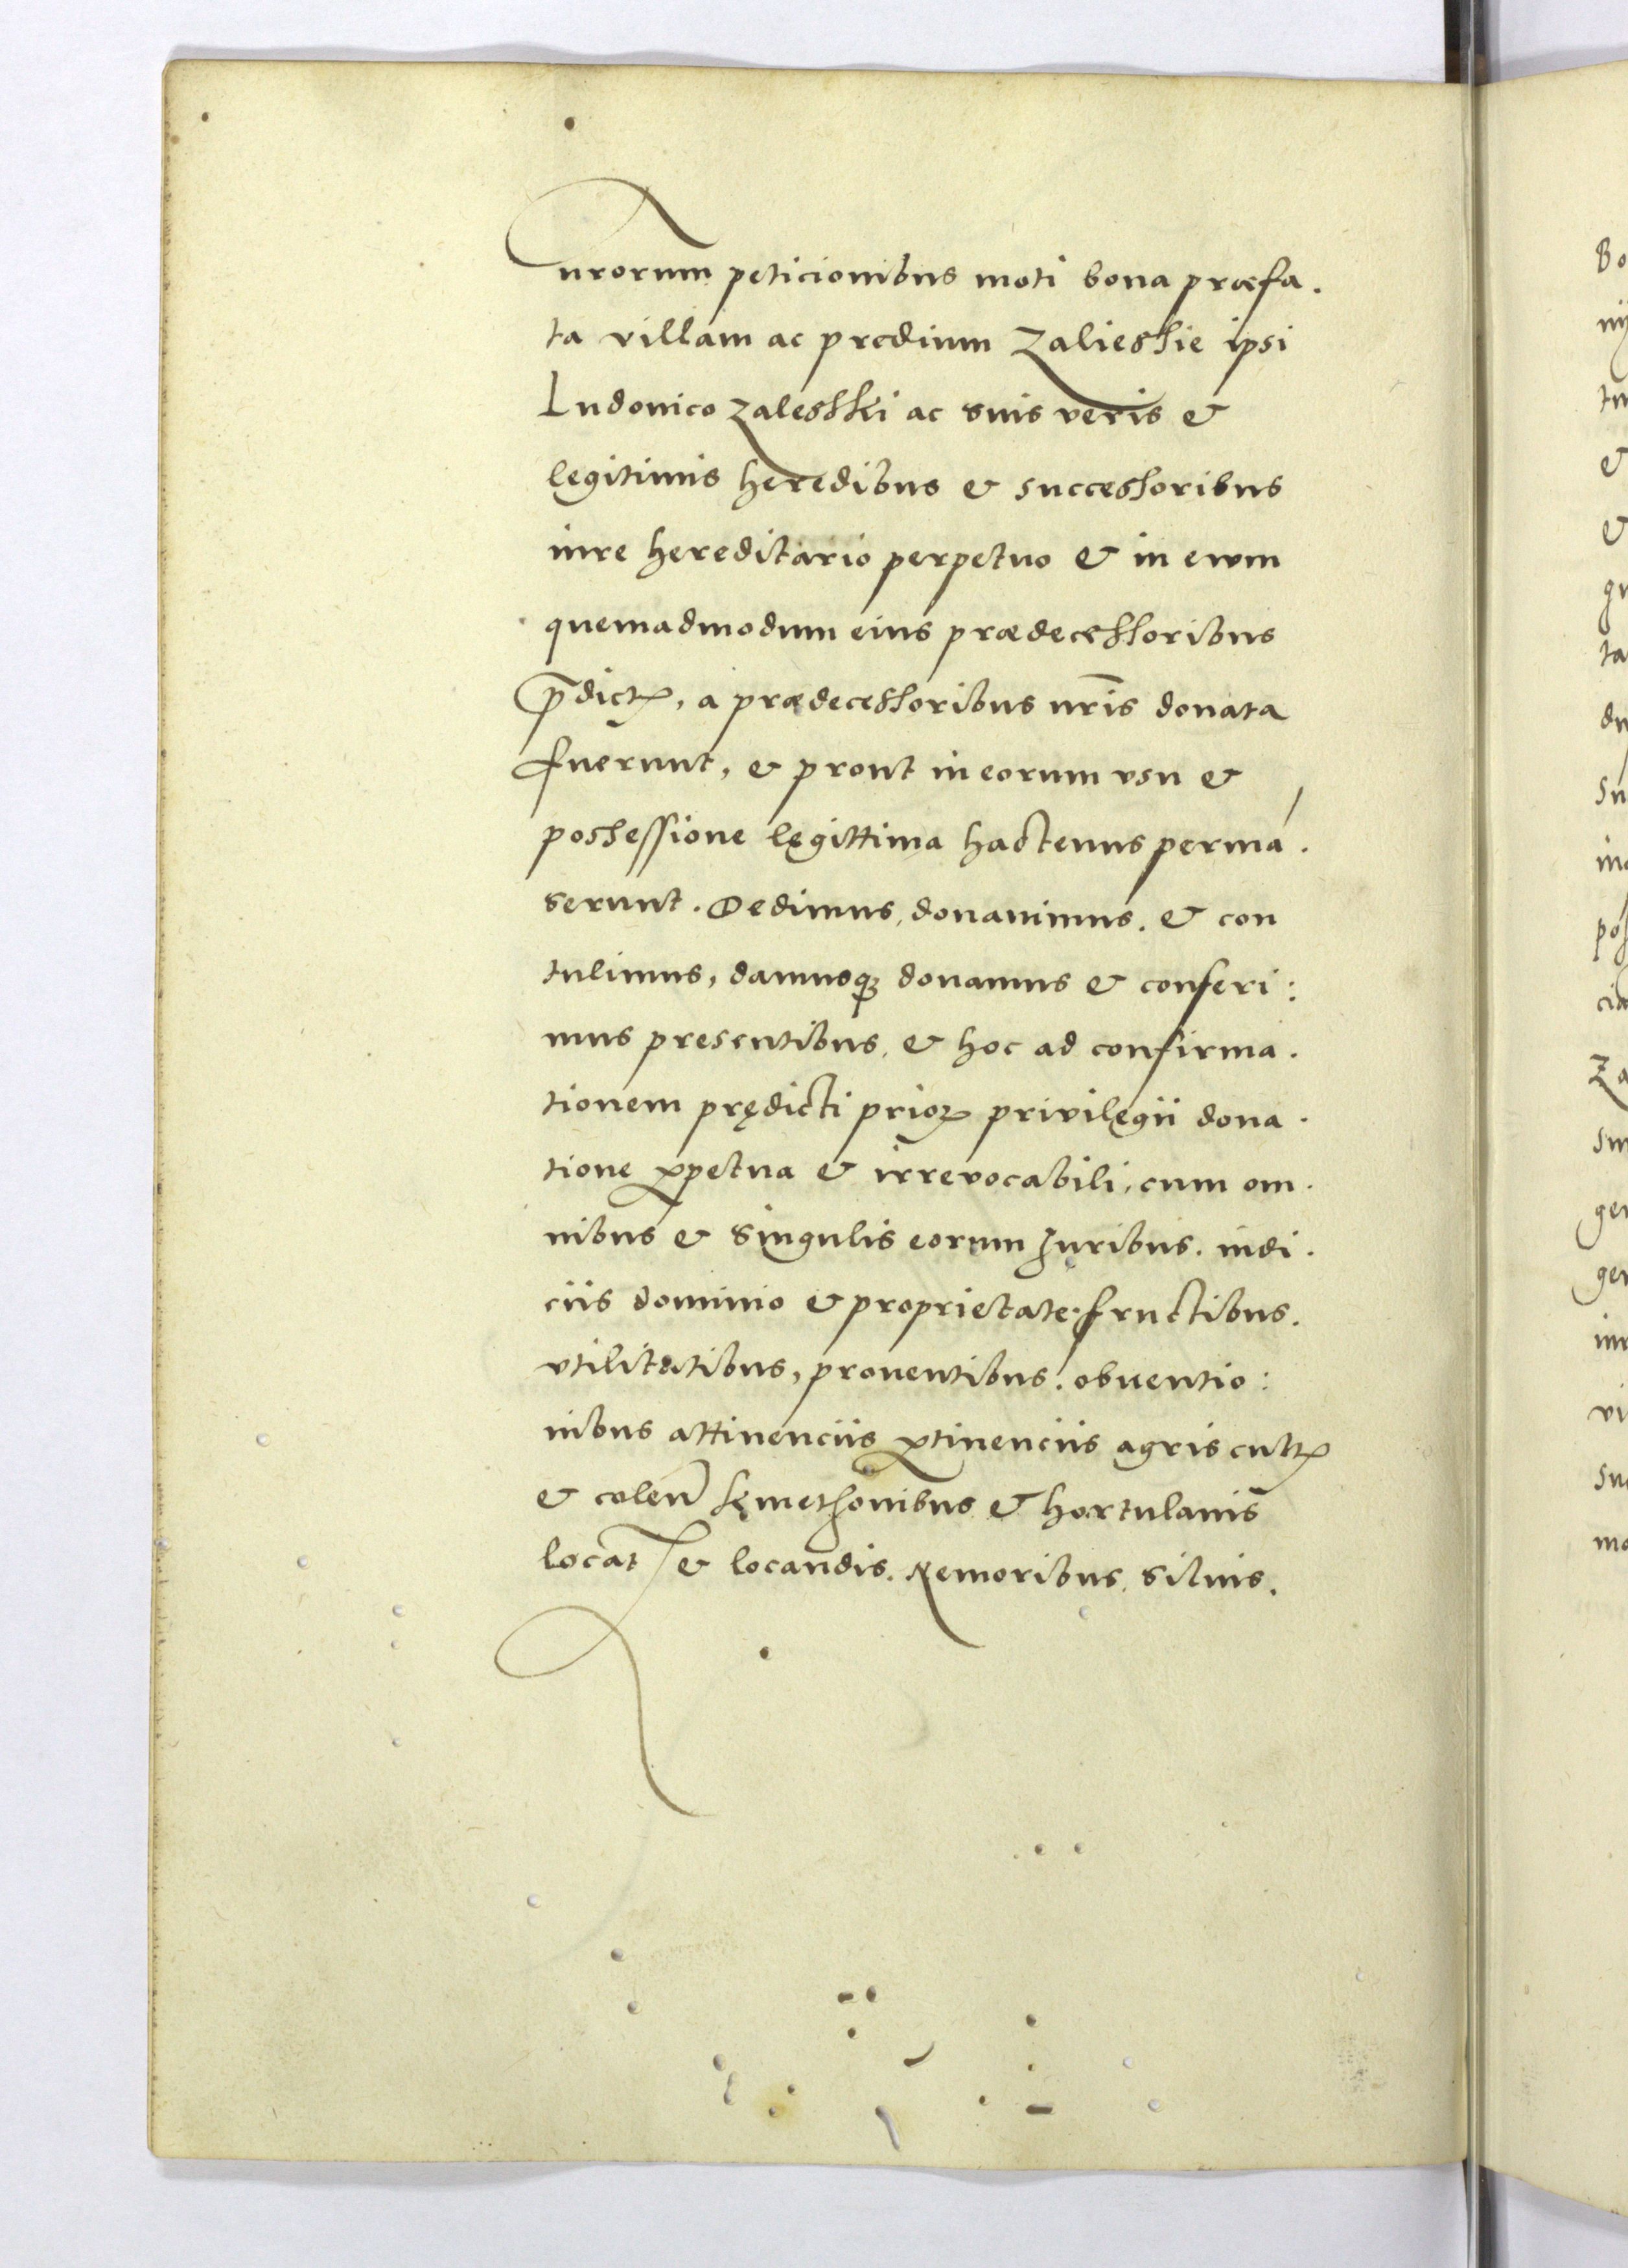 nrorum peticionibus moti bona præfa.
ta villam ac prædium Zalieshie ipsi
Ludouico Zaleshki ac suis veris &
legitimis heredibus & successoribus
iure hereditario perpetuo & in ewm
quemadmodum eius prædecessoribus
p̄dictꝭ, a prædecessoribus nr̄is donata
fuerunt, & prout in eorum vsu &
possessione legittima hactenus permā.
serunt. Dedimus, donauimus. & con
tulimus, damusqꝫ donamus & conferi:
mus presentibus, & hoc ad confirma.
tionem prędicti prioꝝ privilęgii dona.
tione ꝑpetua & irrevocabili, cum om.
nibus & singulis eorum Juribus. iudi.
ciis dominio & proprietate. fructibus.
vtilitatibus, prouentibus. obuentio:
nibus attinenciis ꝑtinenciis agris cultꝭ
& colen̄ kmethonibus & hortulanis
locat & locandis. Nemoribus, siluis.
Bo
nij
tu
&
&
gu
ta
du
su
in
pos
cia
Za
su
gen
gen
iur
vi
su
mo